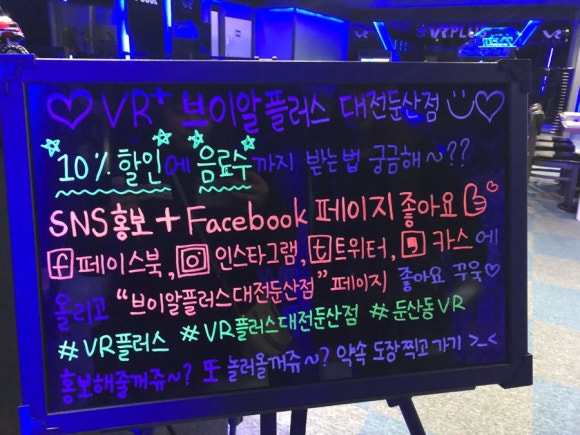 VR PLUS
♡ VR⁺ 브이알플러스 대전둔산점 ♡
10% 할인에 음료수까지 받는법 궁금해~??
SNS홍보 + Facebook 페이지 좋아요
f 페이스북, 인스타그램, t 트위터, 카스에
올리고 "브이알플러스대전둔산점" 페이지 좋아요 꾸욱♡
#VR플러스 #VR플러스대전둔산점 #둔산동VR
홍보해줄꺼쥬~? 또 놀러올꺼쥬~? 약속 도장찍고 가기 >_<